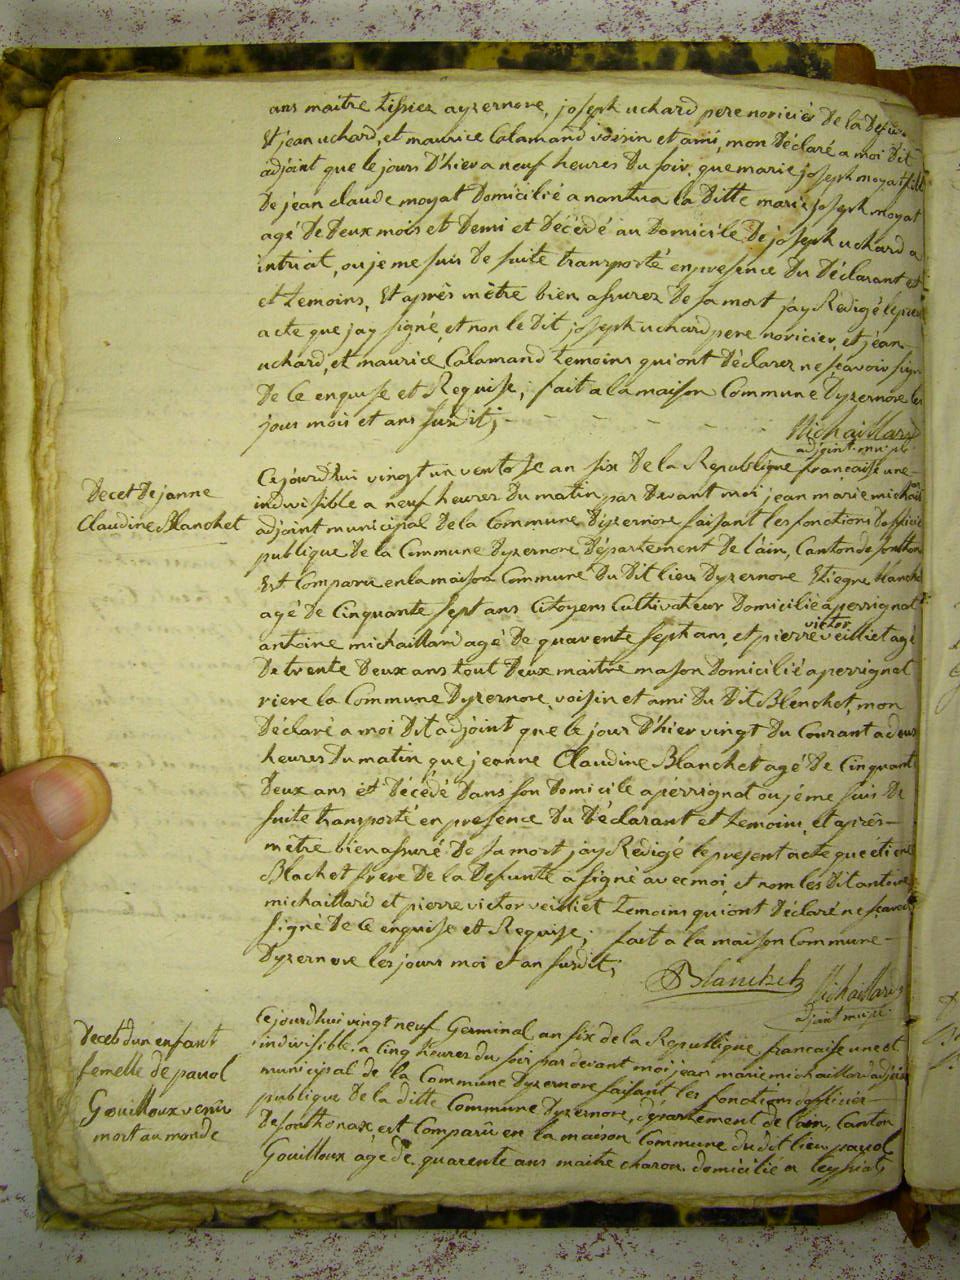 ans maitre tissiez ayzernore, joseph uchard pere noricier de la defu
Et jean uchard, et maurice Calamand voisin et ami, mon Déclaré a moi Dit
adjoint que le jours D'hier a neuf heures Du soir, que marie joseph moyat fils
De jean claude moyat Domicilié a nantua la Ditte marie joseph moyat
agé De Deux mois et Demi et Décédé au Domicile De joseph uchard a
intriat, ou je me suis De suite transporté en presence Du Déclarant et
et temoins, Et après mêtre bien assurez De sa mort jay Rédigé le presen
acte que jay signé, et non le Dit joseph uchard pere noricier, et jéan
uchard, et maurice Calamand temoins qui ont Déclarez ne scavoir sign
De ce enquise et Requise; fait a la maison Commune Dyzernore les
jour mois et ans susdit;
Michaillard
adjoint mupl
Decet De janne
Claudine Blanchet
Cejourdhui vingt un ventose an six De la Republique francaise une
indivisible a neuf heures Du matin, par Devant moi jean marie michail
adjoint municipal De la Commune Dizernore faisant les fonctions Dofficié
publique De la Commune Dyzernore, Département De l'ain, Canton de sonthon
Est Comparu en la maison Commune Du Dit lieu Dyzernore Etiegne blanche
agé De Cinquante sept ans Citoyens Cultivateur Domicilié a perrignat
antoine michaillard agé De quarente sept ans, et pierre victor veilliet agé
De trente Deux ans tout Deux maitre mason Domicilié a perrignat
riere la Commune Dyzernore voisin et ami Du Dit Blanchet, mon
Déclaré a moi Dit adjoint que le jour D'hier vingt Du Courant a deux
heures Du matin que jeanne Claudine Blanchet agé De Cinquant
Deux ans et Décédé Dans son Domicile a pérrignat ou jéme suis De
suite transporté en presence Du Déclarant et temoins, et après
mêtre bien assuré De sa mort jay Rédigé le present acte que etiene
Blachet frere De la Defunte a signé avec moi, et nom les Dit antoine
michaillard et pierre victor veilliet temoins qui ont Déclaré ne scavoir
signé De ce enquise et Requise; fait a la maison Commune
Dyzernore les jours moi et an susdit;
Blanchet
Michaillard
adjoint mupl
Decet dun enfant
femelle de pauol
Gouilloux venu
mort au monde
Cejourdhui vingt neuf Germinal an six de la Republique francaise une et
indivisible, a cinq heures du soir par devant moi jean marie michaillard adjoin
municipal de la Commune Dyzernore faisant les fonctions dofficier
publique de la ditte Commune Dyzernore, département de lain, Canton
De sonthonax, est Comparu en la maison Commune du dit lieu pauol
Gouilloux agé de quarente ans maitre charon domicilié a leyssiat,